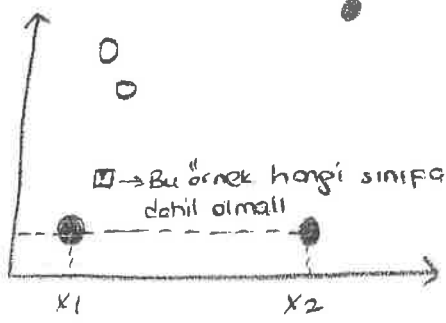 → Bu örnek hangi sınıfa
dahil olmalı
x1 x2